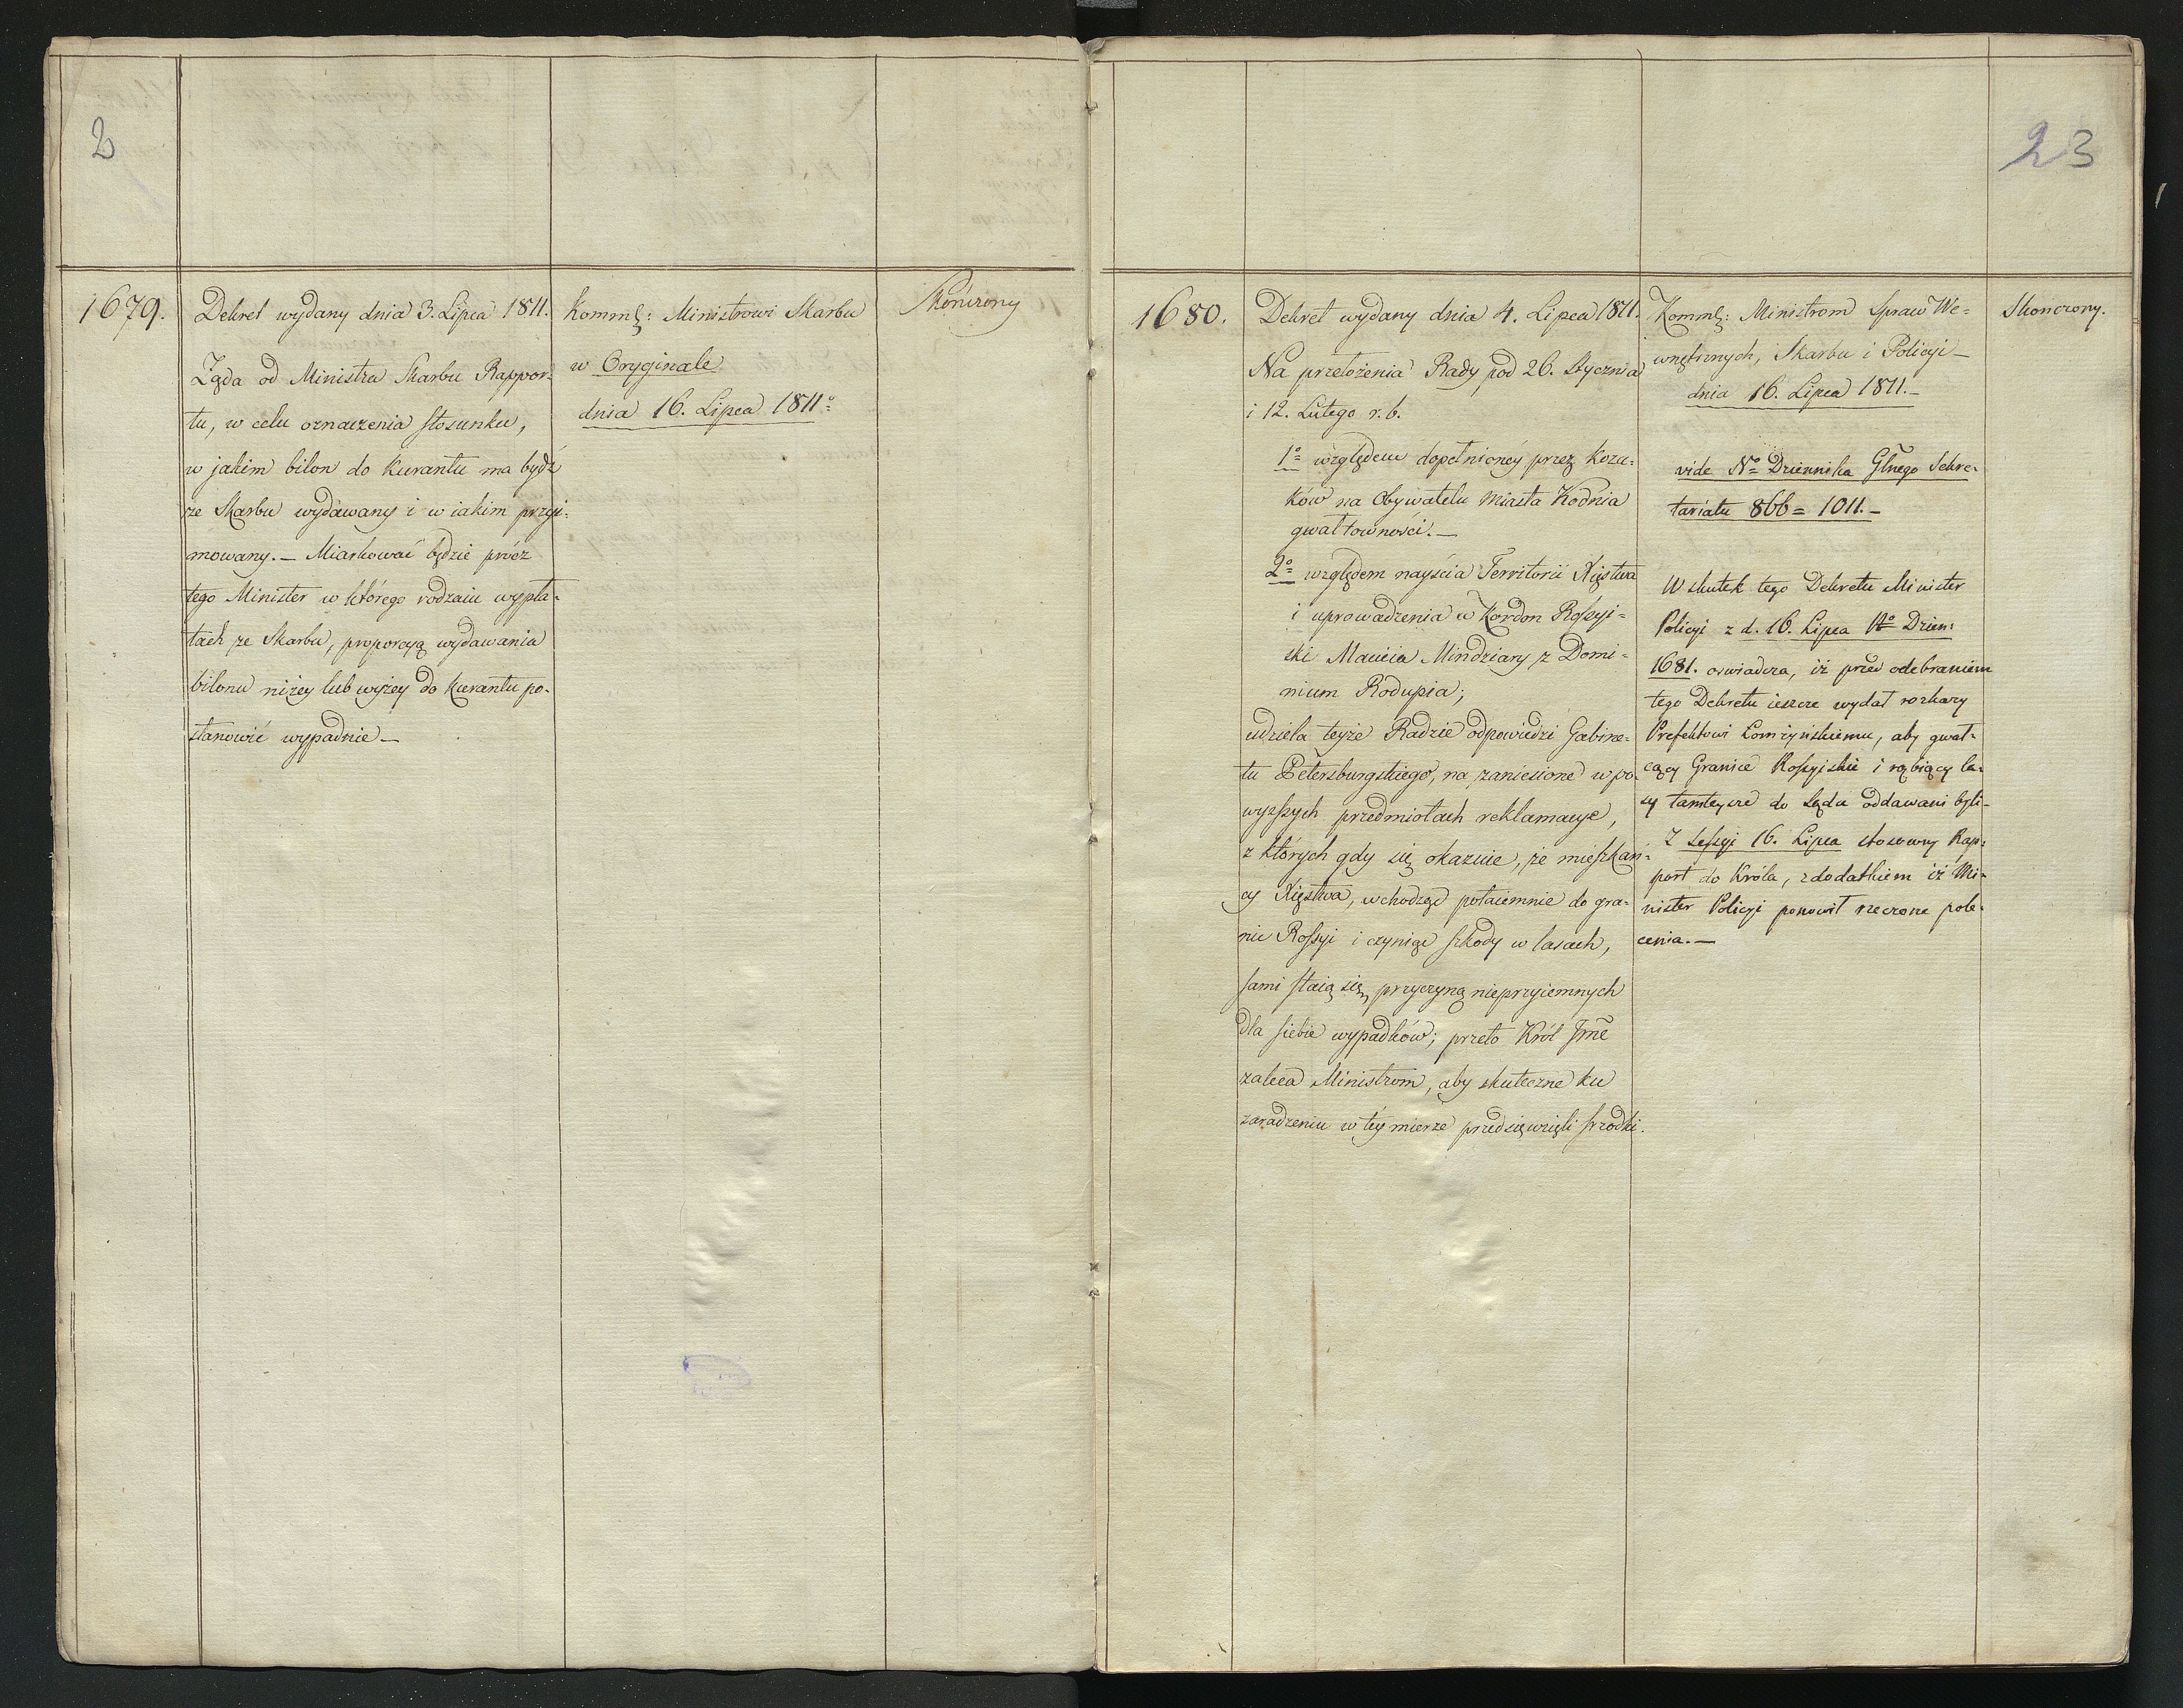 2
1679.
Dekret wydany dnia 3. Lipca 1811.
Żąda od Ministra Skarbu Rappor-
tu, w celu oznaczenia stosunku,
w jakim bilon do kurantu ma bydź
ze Skarbu wydawany i w iakim przyi-
mowany. — Miarkować będzie prócz
tego Minister w którego rodzaiu wypła-
tach ze Skarbu, proporcyą wydawania
bilonu niżey lub wyżey do kurantu po-
stanowić wypadnie —
Komm: Ministrowi Skarbu
w Oryginale
dnia 16. Lipca 1811
Skończony
23
1680.
Dekret wydany dnia 4. Lipca 1811.
Na przełożenia Rady pod 26. Stycznia
i 12. Lutego r. b.
1o względem dopełnioney przez Koza-
ków na Obywatelu Miasta Kodnia
gwałtowności. —
2o względem nayścia Territorii Xięstwa
i uprowadzenia w Kordon Rossyi-
ski Macieia Mindziary z Domi-
nium Rodupia;
udziela teyże Radzie odpowiedzi Gabine-
tu Petersburgskiego, na zaniesione w po-
wyższych przedmiotach reklamacye,
z których gdy się okazuie, że mieszkań-
cy Xięstwa, wchodząc potaiemnie do gra-
nic Rossyi i czyniąc szkody w lasach,
sami staią się przyczyną nieprzyiemnych
dla siebie wypadków; przeto Król Jmć
zaleca Ministrom, aby skuteczne ku
zaradzeniu w tey mierze przedsięwzięli srzodki.
Komm: Ministrom Spraw We-
wnętrznych, Skarbu i Policyi —
dnia 16. Lipca 1811. —
vide No Dziennika Głnego Sekre-
tariatu 866 = 1011. —
W skutek tego Dekretu Minister
Policyi z d. 16. Lipca No Dzien:
1681. oswiadcza, iż przed odebraniem
tego Dekretu ieszcze wydał rozkazy
Prefektowi Łomżyńskiemu, aby gwał-
cący Granice Rossyiskie i rąbiący la-
sy tamteysze do Sądu oddawani byli —
Z Sessyi 16. Lipca stosowny Rap-
port do Króla, z dodatkiem iż Mi-
nister Policyi ponowił rzeczone pole-
cenia. —
Skonczony.